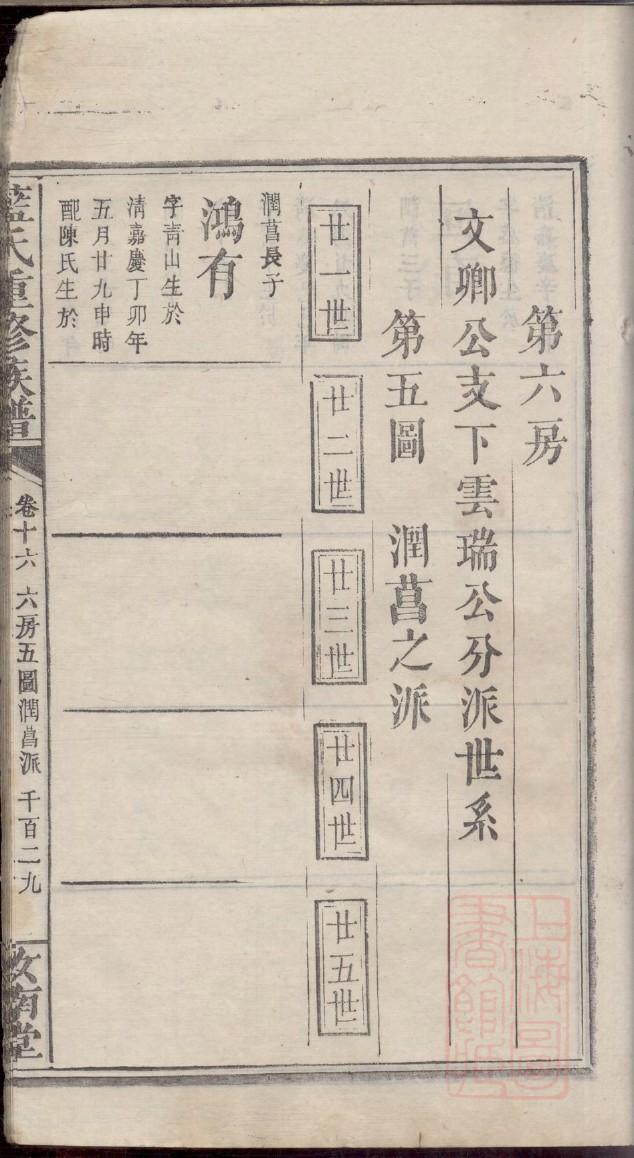 第六房
文卿公支下雲瑞公分派世系
第五圖 潤菖之派
廿一世
廿二世
廿三世
廿四世
廿五世
潤菖長子
鴻有
字青山生於
清嘉慶丁卯年
五月廿九申時
配陳氏生於
藍氏重修族譜
卷十六 六房五圖潤菖派 千百二九
汝南堂
上海圖
書館藏